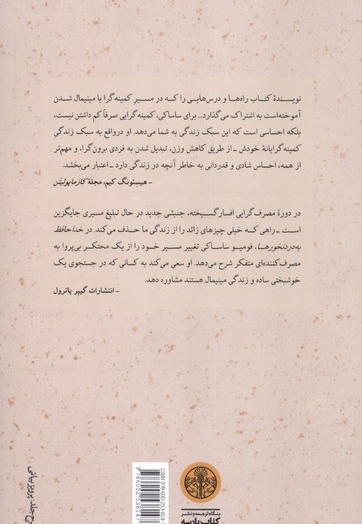 نویسندهٔ کتاب راه‌ها و درس‌هایی را که در مسیر کمینه‌گرا یا مینیمال شدن
آموخته‌است به اشتراک می‌گذارد... برای ساساکی، کمینه‌گرایی صرفاً کم داشتن نیست،
بلکه احساسی است که این سبک زندگی به شما می‌دهد. او درواقع به سبک زندگی
کمینه‌گرایانهٔ خودش ـ از طریق کاهش وزن، تبدیل شدن به فردی برون‌گرا، و مهم‌تر
از همه، احساس شادی و قدردانی به خاطر آنچه در زندگی دارد ـ اعتبار می‌بخشد.
ـ هیسونگ کیم، مجلهٔ کازماپولیتن
در دورهٔ مصرف‌گرایی افسارگسیخته، جنبشی جدید در حال تبلیغ مسیری جایگزین
است ـ راهی که خیلی چیزهای زائد را از زندگی ما حذف می‌کند. در خداحافظ
به‌دردنخورها، فومیو ساساکی تغییر مسیر خود را از یک محتکر بی‌پروا به
مصرف‌کننده‌ای متفکر شرح می‌دهد. او سعی می‌کند به کسانی که در جستجوی یک
خوشبختی ساده و زندگی مینیمال هستند مشاوره دهد.
ـ انتشارات گیبر پاترول
بنگاه ترجمه و نشر
کتاب پارسه